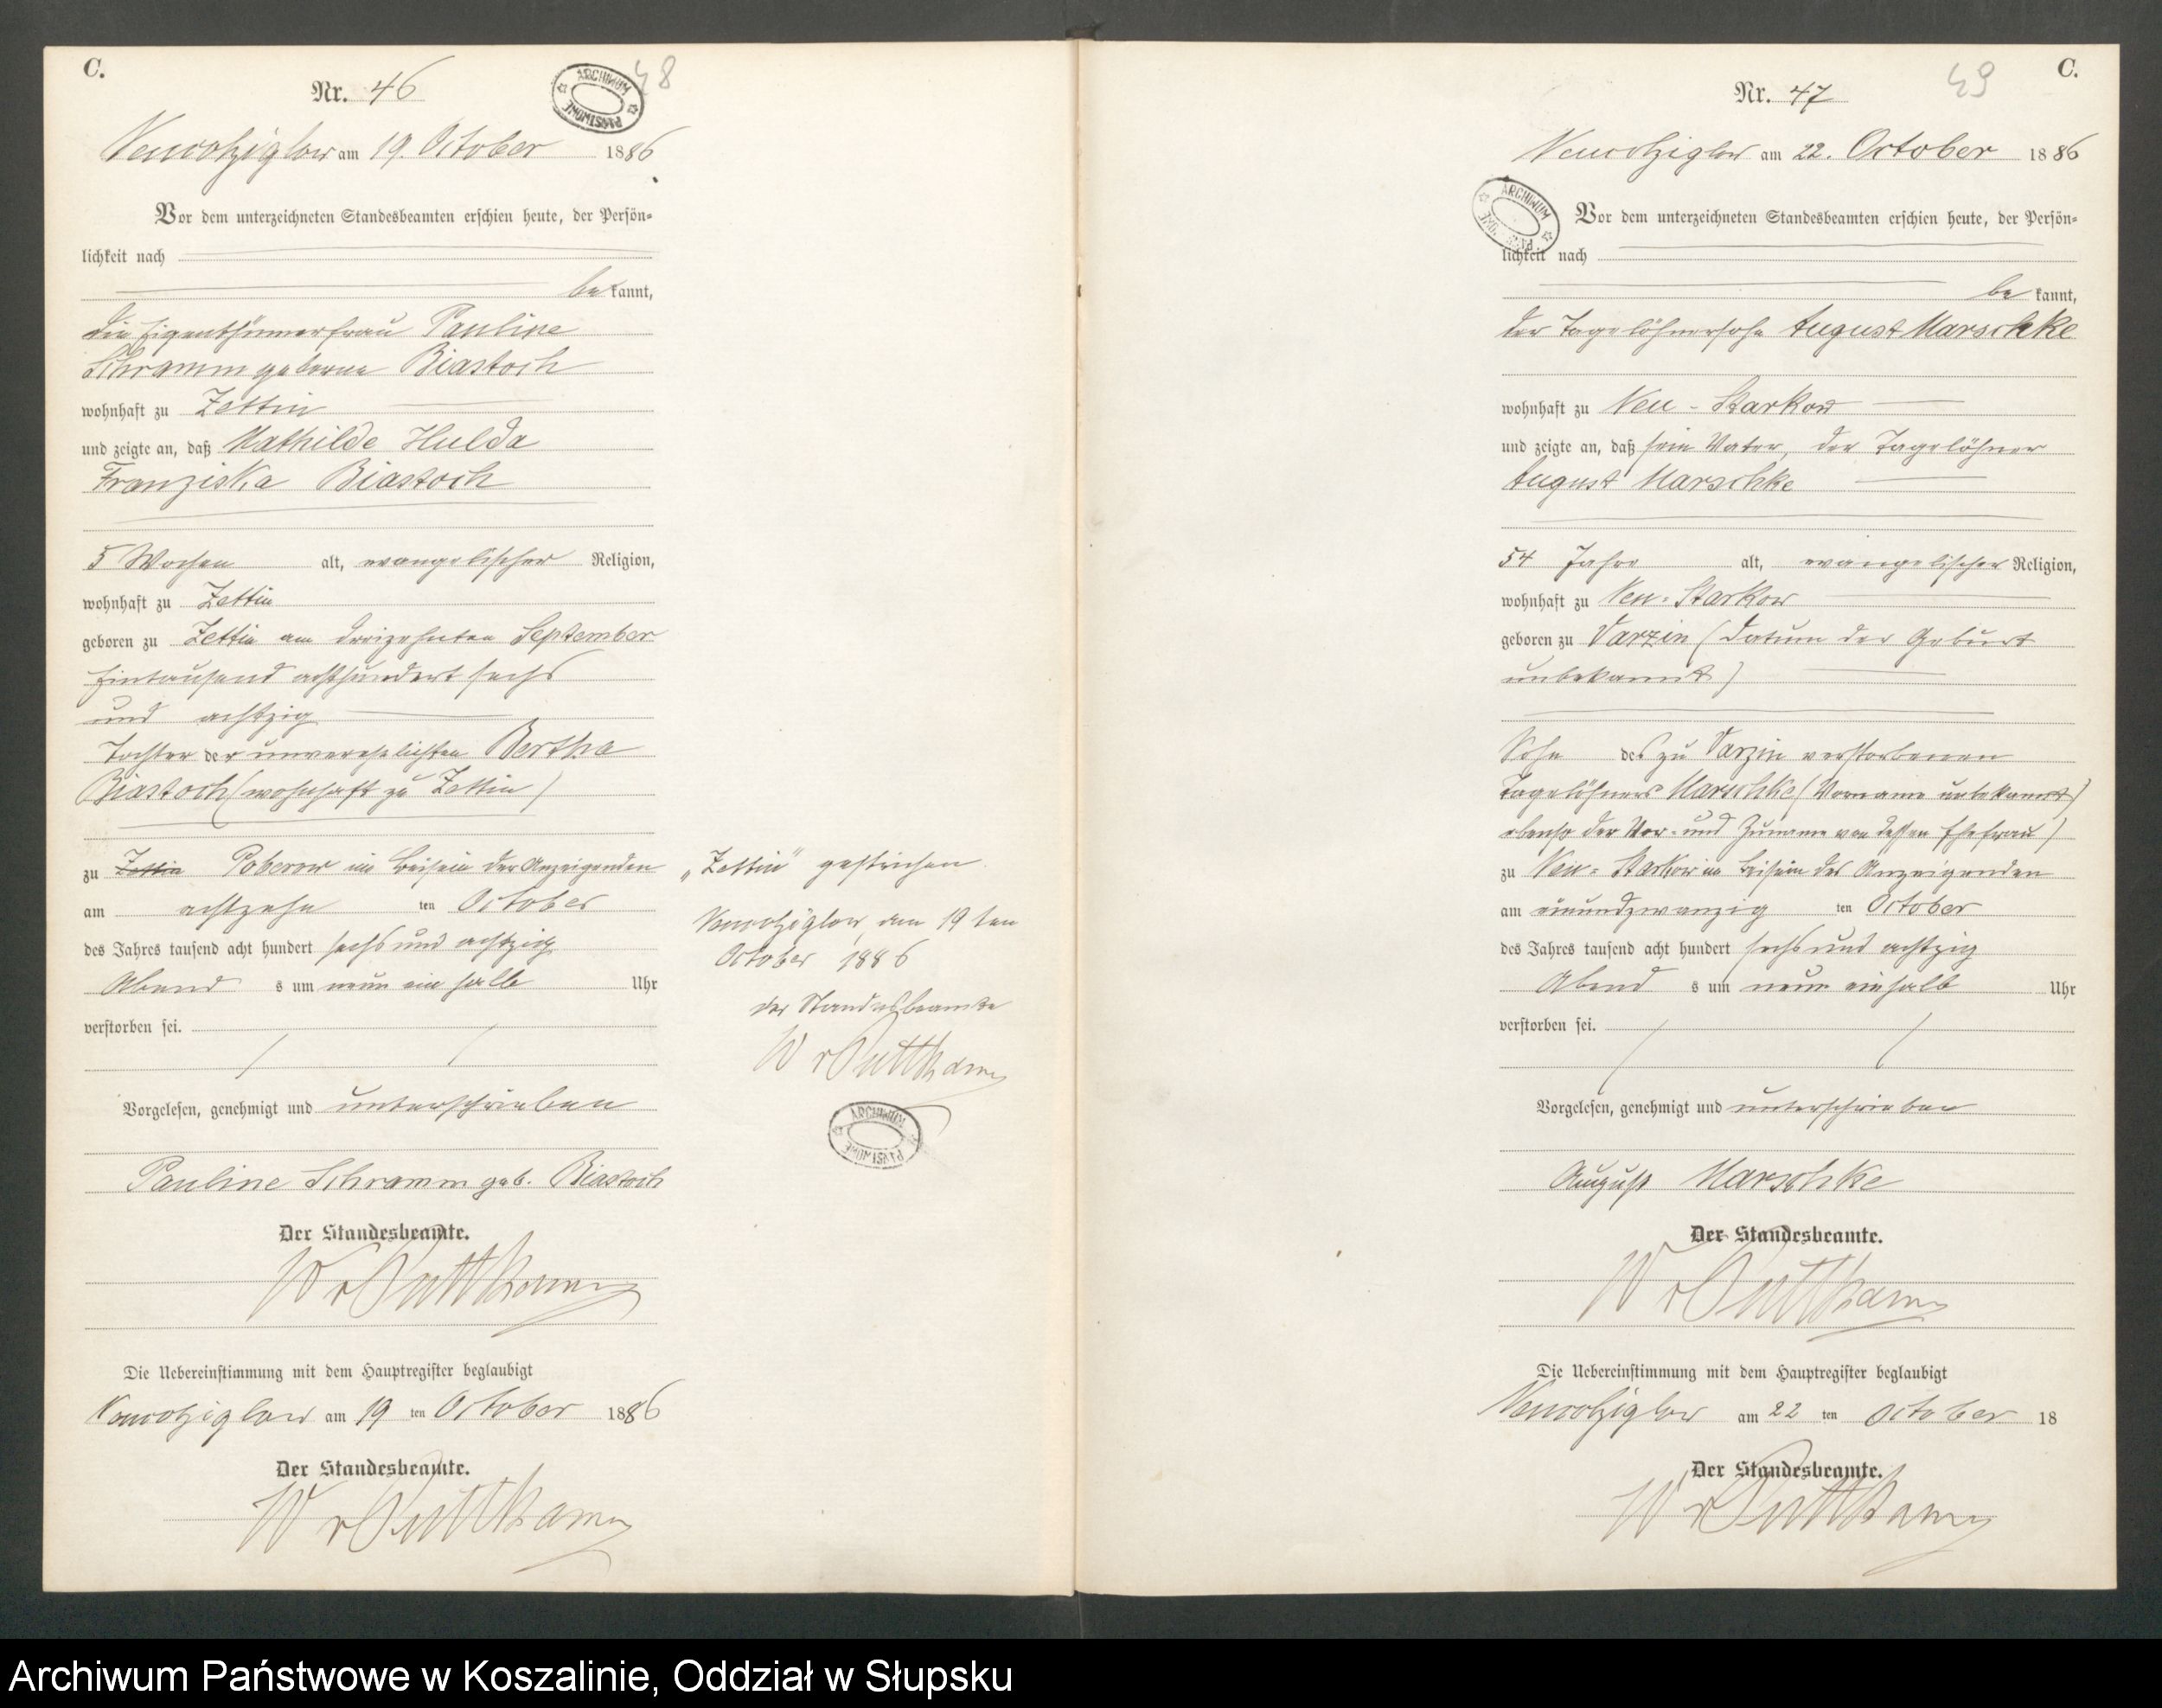 C.
Nr. 46
48
ARCHIWUM PAŃSTWOWE
Neuwohziglow am 19. October 1886
Vor dem unterzeichneten Standesbeamten erschien heute, der Persön=
lichkeit nach
bekannt,
die Eigenthümerfrau Pauline
Schramm geborne Biastoch
wohnhaft zu Zettin
und zeigte an, daß Mathilde Hulda
Franziska Biastoch
5 Wochen alt, evangelischer Religion,
wohnhaft zu Zettin
geboren zu Zettin am dreizehnten September
Eintausend achthundert sechs
und achtzig
Tochter der unverehelichten Bertha
Biastoch (wohnhaft zu Zettin)
zu Zettin Poberow im Beisein der Anzeigenden
am achtzehn ten October
des Jahres tausend acht hundert sechs und achtzig
Abend s um neun ein halb Uhr
verstorben sei.
Vorgelesen, genehmigt und unterschrieben
Pauline Schramm geb. Biastoch
Der Standesbeamte.
W v Puttkamer
Die Uebereinstimmung mit dem Hauptregister beglaubigt
Neuwohziglow am 19 ten October 1886
Der Standesbeamte.
W v Puttkamer
„Zettin" gestrichen.
Neuwohziglow, den 19 ten
October 1886
der Standesbeamte
W v Puttkamer
ARCHIWUM PAŃSTWOWE
C.
Nr. 47
49
Neuwohziglow am 22. October 1886
ARCHIWUM
Vor dem unterzeichneten Standesbeamten erschien heute, der Persön=
lichkeit nach
be kannt,
der Tagelöhnersohn August Marschke
wohnhaft zu Neu-Starkow
und zeigte an, daß sein Vater, der Tagelöhner
August Marschke
54 Jahre alt, evangelischer Religion,
wohnhaft zu Neu-Starkow
geboren zu Varzin (Datum der Geburt
unbekannt)
Sohn des zu Varzin verstorbenen
Tagelöhners Marschke (Vorname unbekannt)
ebenso der Vor- und Zuname von dessen Ehefrau)
zu Neu-Starkow im Beisein des Anzeigenden
am einundzwanzig ten October
des Jahres tausend acht hundert sechs und achtzig
Abend s um neun einhalb Uhr
verstorben sei.
Vorgelesen, genehmigt und unterschrieben
August Marschke
Der Standesbeamte.
W v Puttkamer
Die Uebereinstimmung mit dem Hauptregister beglaubigt
Neuwohziglow am 22 ten October 18
Der Standesbeamte.
W v Puttkamer
Archiwum Państwowe w Koszalinie, Oddział w Słupsku